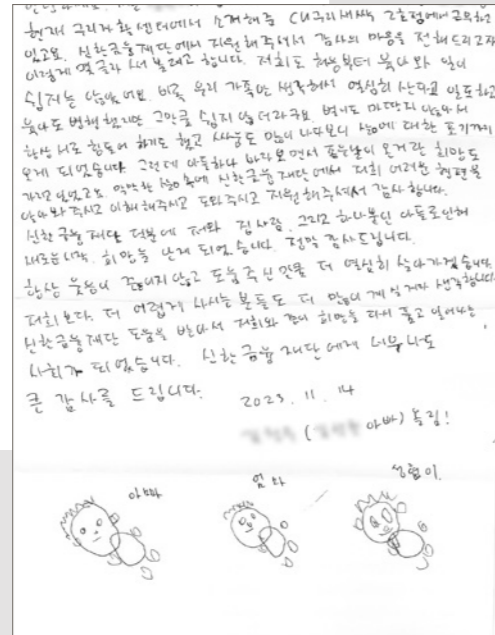 현재 구리자활센터에서 소개해준 CU구리새싹 2호점에 근무하고
있고요. 신한금융재단에서 지원해주셔서 감사의 마음을 전해드리고자
이렇게 몇글자 써 볼려고 합니다. 저희도
쉽지는 않았어요. 비록 우리 가족만 생각해서 열심히 산다고 일도하고
그만큼 쉽지 않더라구요. 벌이도 마땅치 않아서
항상 서로 힘들어 하기도 했고 싸움도 많이 나다보니 삶에 대한 포기까지
오게 되었습니다 그런데 아들하나 바라보면서 좋은날이 온거란 희망도
가지고 있었고요. 막막한 삶속에 신한금융재단에서 저희 어려운 형편을
알아봐 주시고 이해해주시고 도와주시고 지원해주셔서 감사 합니다.
신한금융재단 덕분에 저와 집사람, 그리고 하나뿐인 아들로인해
새로운시작, 희망을 난게 되었습니다. 정말 감사드립니다.
항상 웃음이 끊이지않고 도움주신만큼 더 열심히 살아가겠습니다
저희 보다. 더 어렵게 사시는 분들도 더 많이 계실거라 생각합니다
신한금융재단 도움을 받아서 저희와 같이 희망을 다시 품고 일어나는
사회가 되었습니다. 신한금융 재단에게 너무나도
큰 감사를 드립니다.
2023. 11. 14
( 아빠) 올림!
아빠
엄마